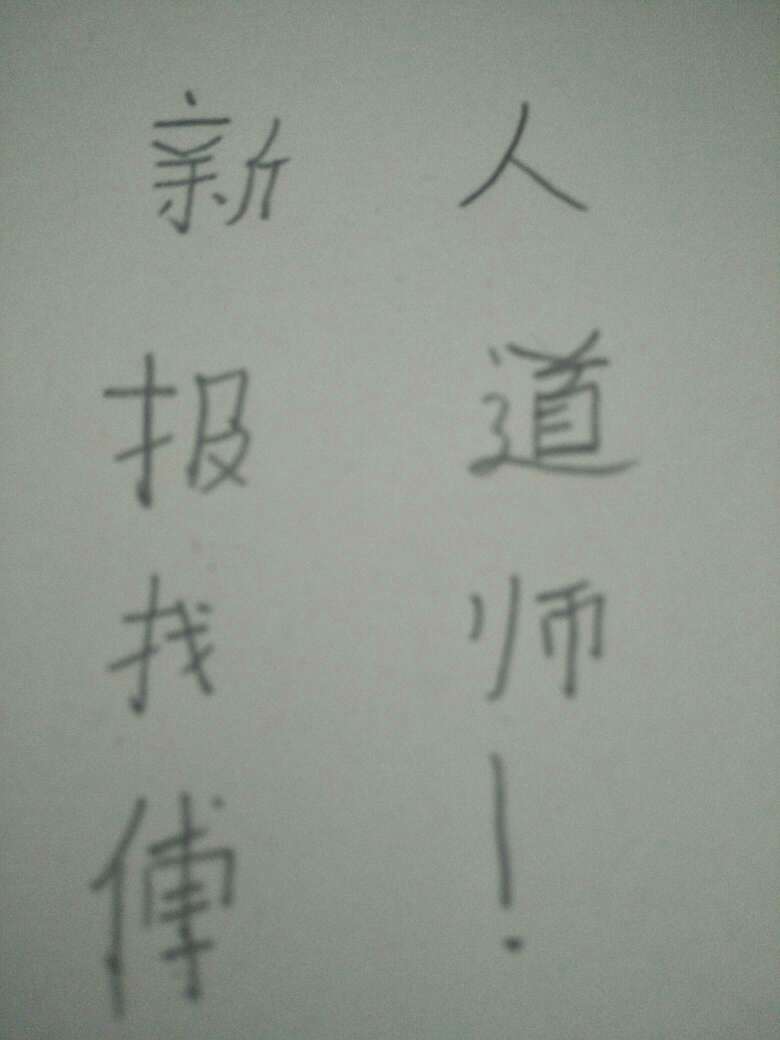 新人
报道
找师
傅!